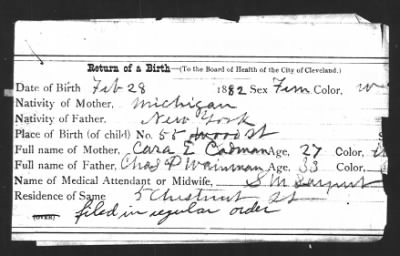 Return of a Birth—(To the Board of Health of the City of Cleveland.)
Date of Birth Feb 28 1882 Sex Fem Color, w
Nativity of Mother, Michigan
Nativity of Father, New York
Place of Birth (of child) No. 55 Wood St
Full name of Mother, Cara E Cadman Age, 27 Color,
Full name of Father, Chas P Wainman Age, 33 Color,
Name of Medical Attendant or Midwife, S M Sargent
Residence of Same 5 Chestnut St
(OVER) filed in regular order